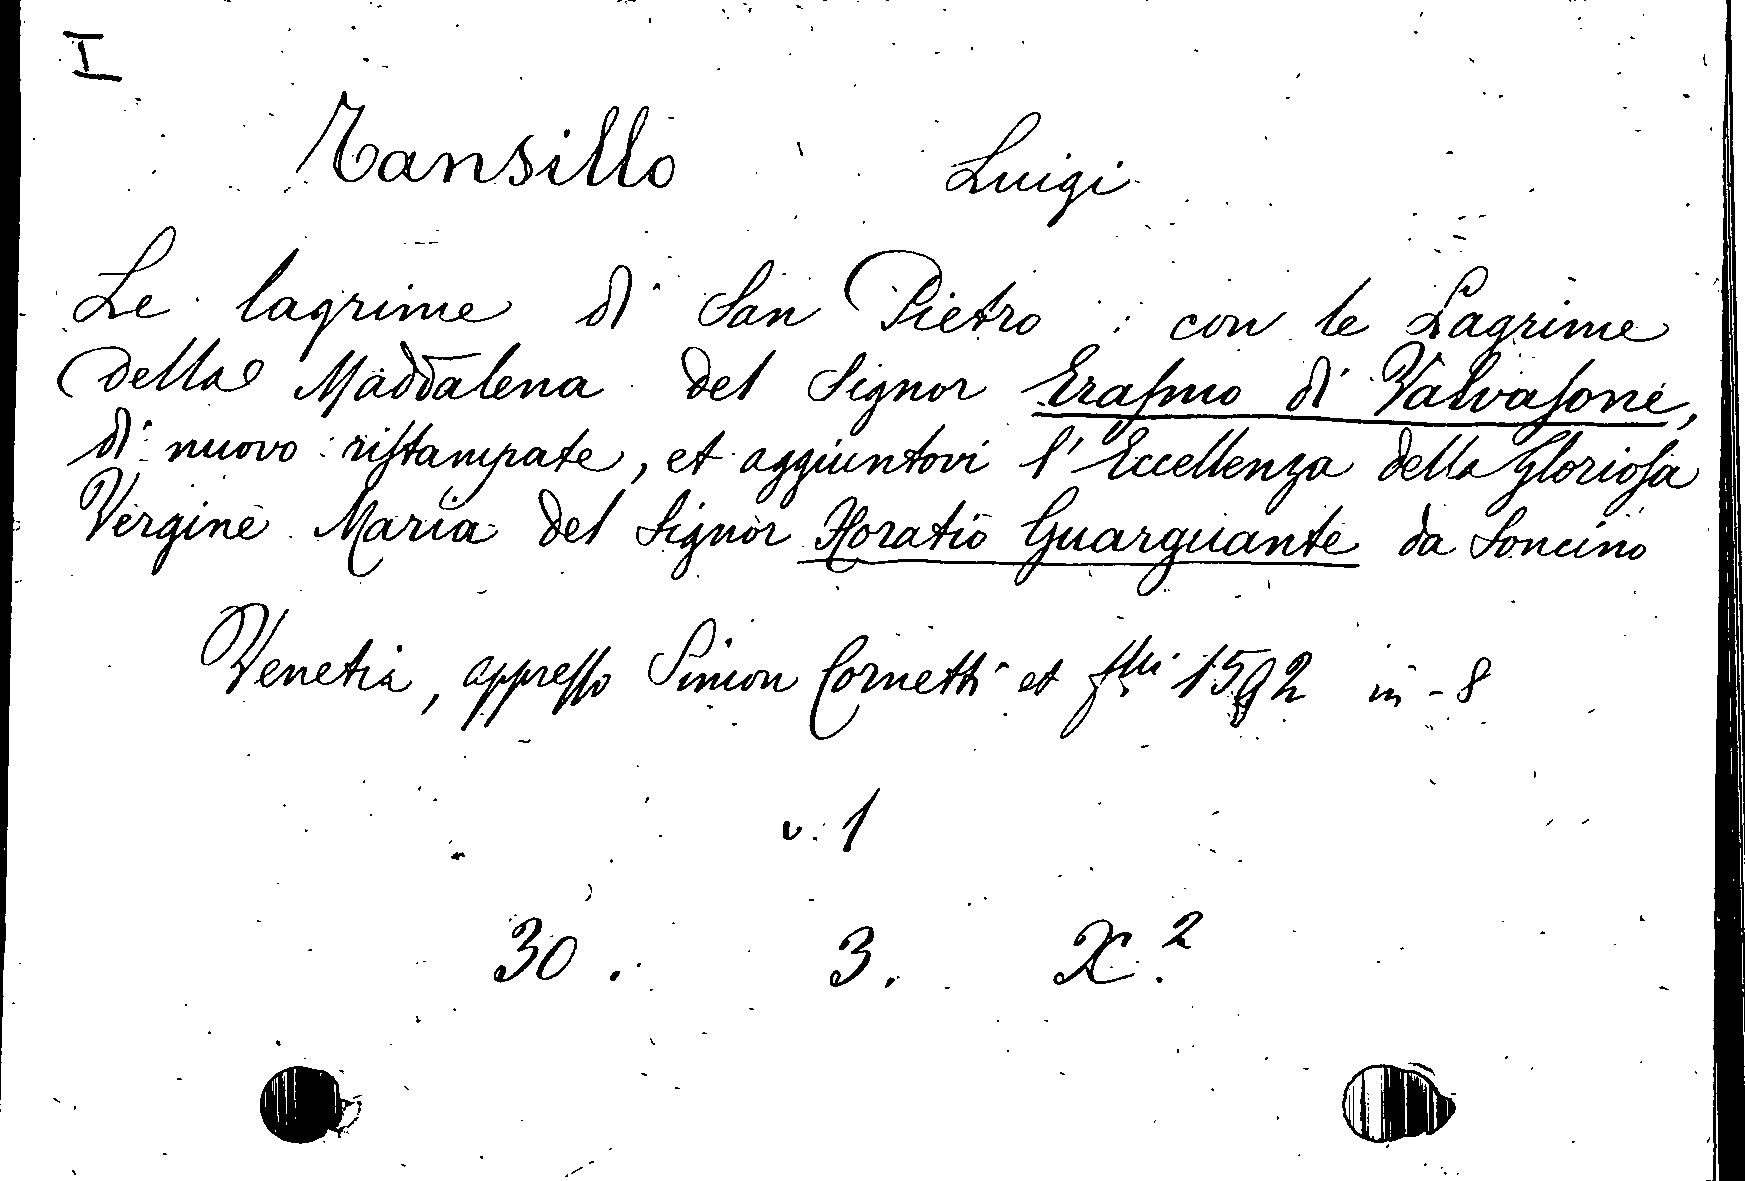 I
Tansillo Luigi
Le lagrime di San Pietro : con le Lagrime
della Maddalena del Signor Erasmo di Valvasone,
di nuovo ristampate, et aggiuntovi l'Eccellenza della Gloriosa
Vergine Maria del Signor Horatio Guarguante da Soncino
Venetia, appresso Simon Cornetti et f.lli 1592 in-8
v. 1
30. 3. X.2